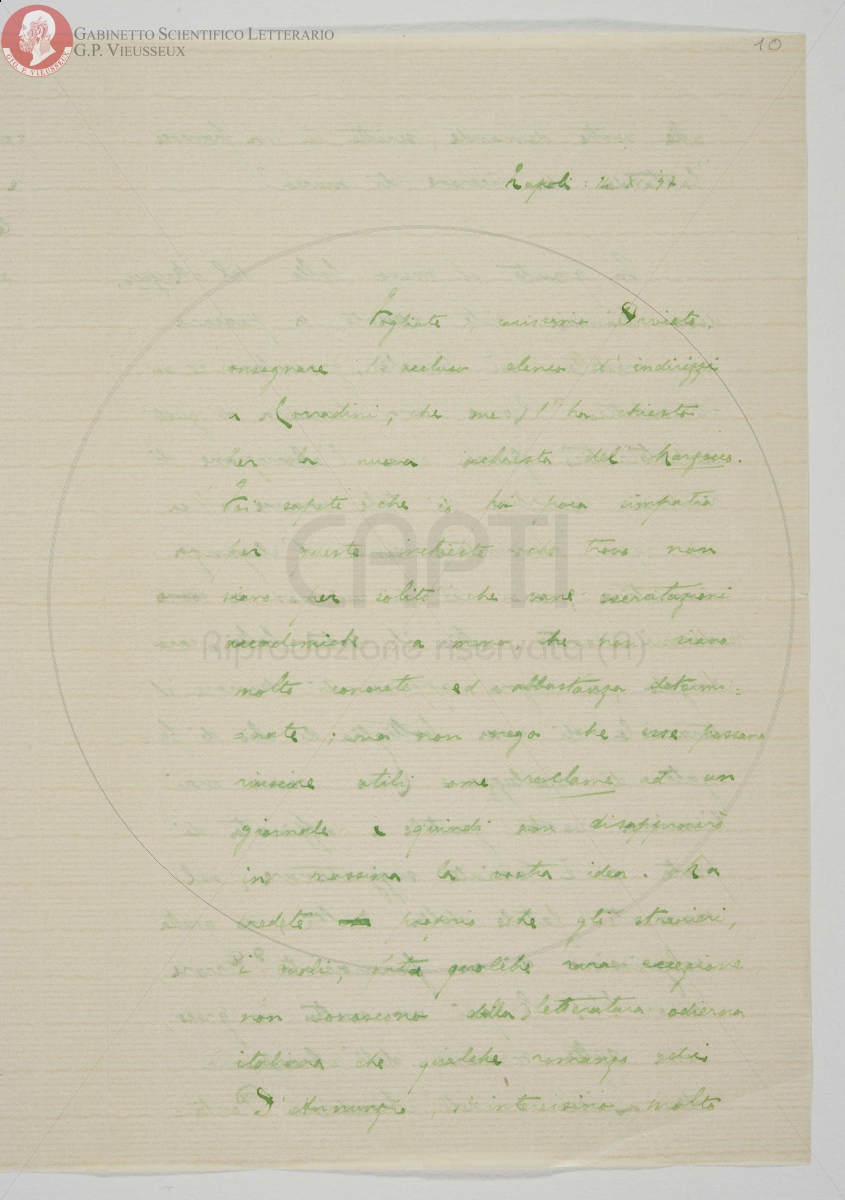 GABINETTO SCIENTIFICO LETTERARIO
G.P. VIEUSSEUX
GIO. P. VIEUSSEUX
10
Napoli: X 97
Vogliate, carissimo Orvieto,
consegnare l'accluso elenco d'indirizzi
a Corradini, che me l'ha chiesto
per la nuova inchiesta del Marzocco.
Voi sapete che io ho poca simpatia
per queste inchieste: trovo non
siano per solito che vane esercitazioni
accademiche, a meno che non siano
molto concrete ed abbastanza determi=
nate; ma non nego che esse possano
riuscire utili come reclame ad un
giornale e quindi non disapprovo
in massima la vostra idea. Ma
credete proprio che gli stranieri,
i quali, fatta qualche rara eccezione
non conoscono della letteratura odierna
italiana che qualche romanzo del
D'Annunzio, s'interessino molto
CAPTI
Riproduzione riservata (R)